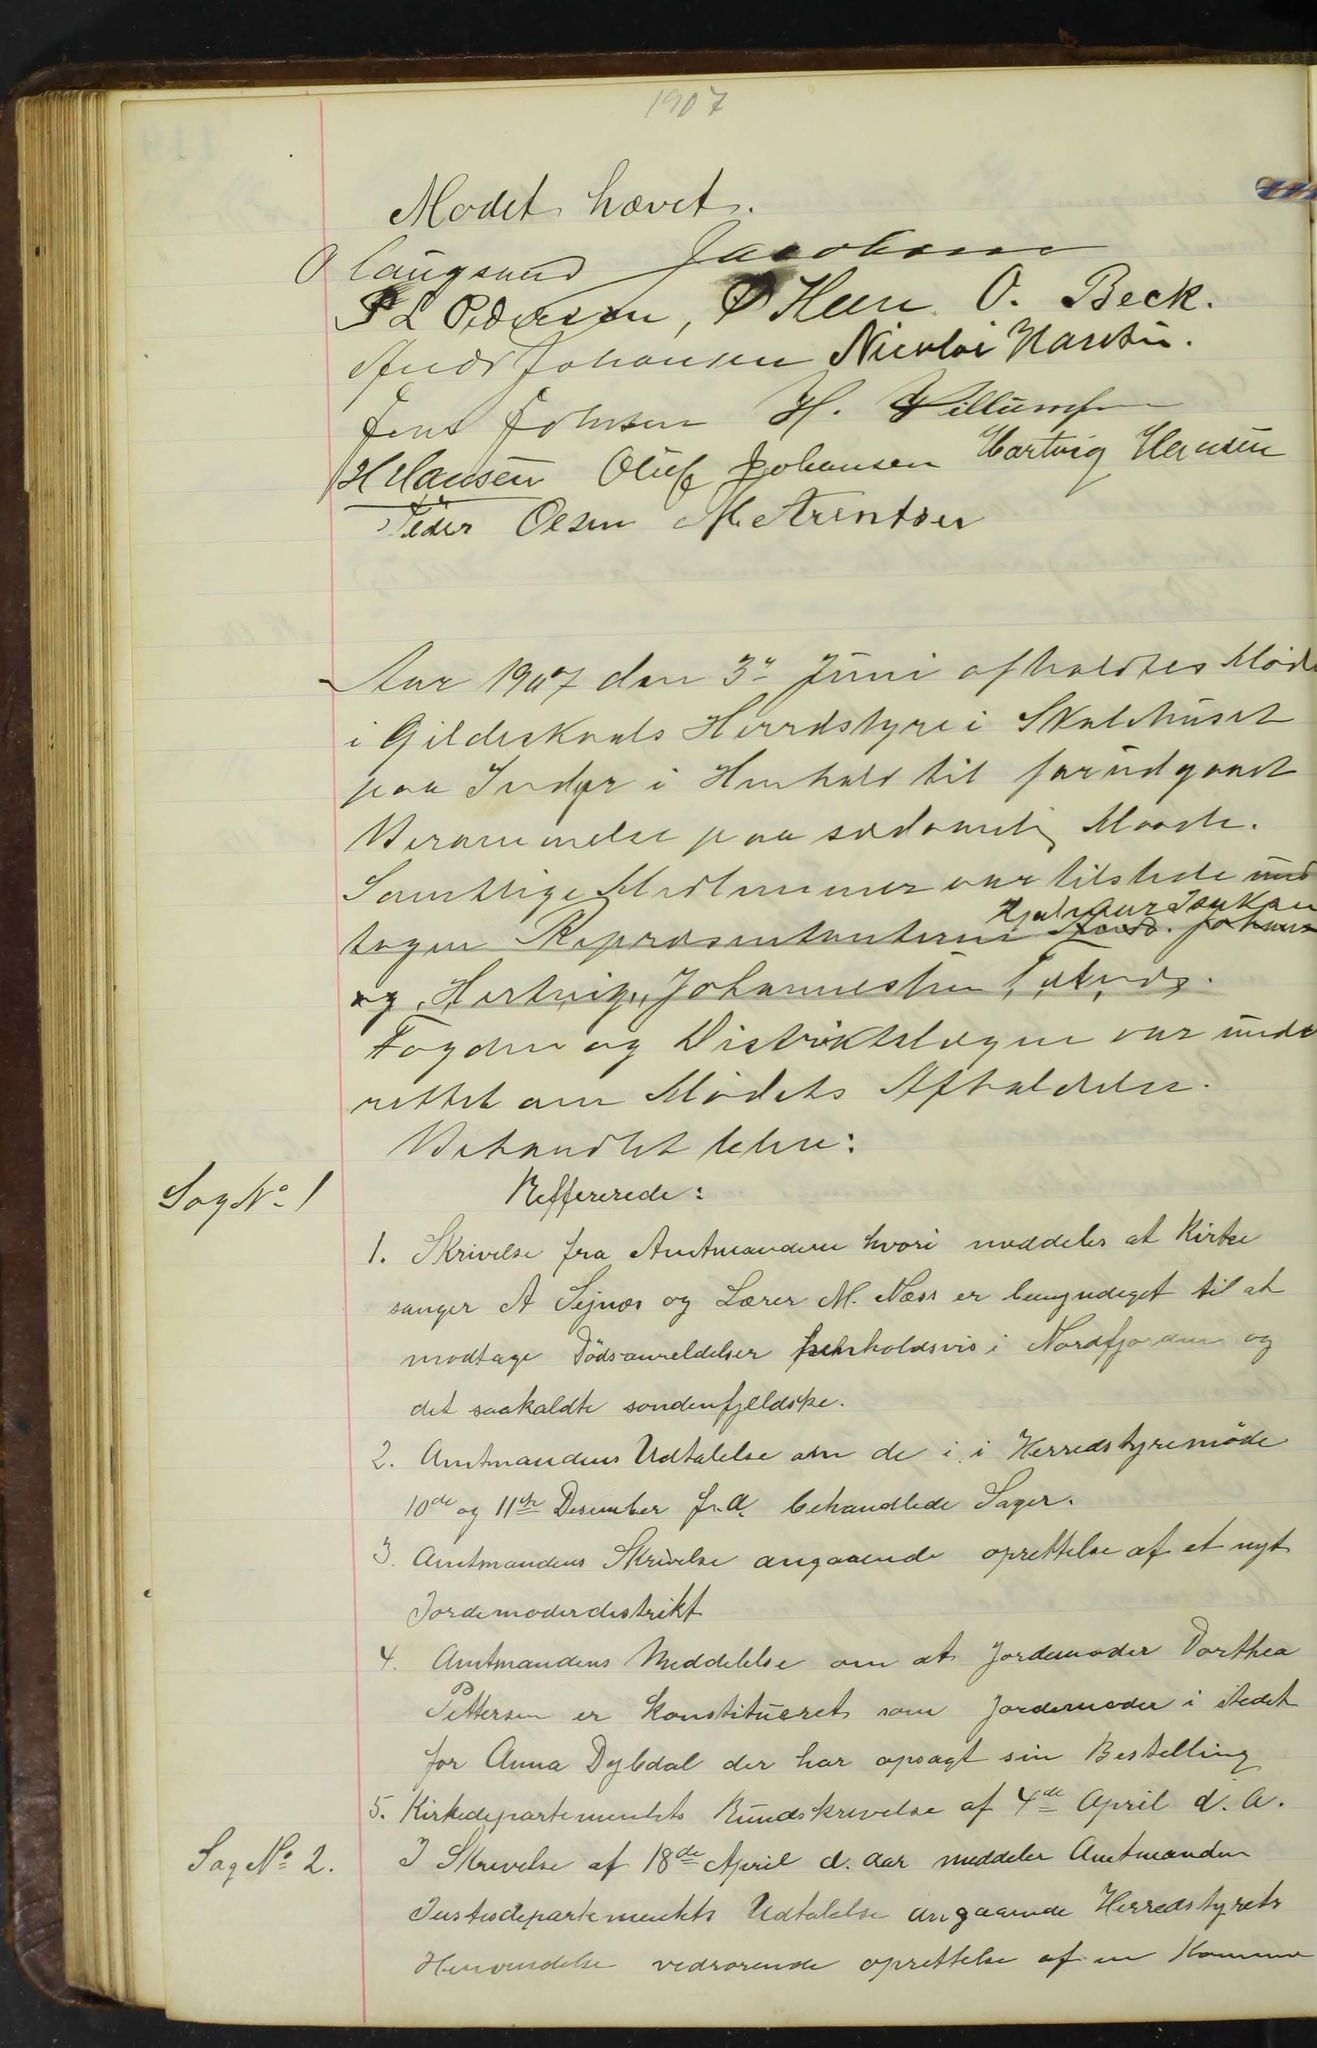 1907
Mødet hævet.
O Langsund Jacobsen
P L Pedersen, P Heen O. Beck.
Andr Johansen Nicolai Hansen.
Jens Johnsen H. Willumsen
H Hansen Oluf Johansen Hartvig Hansen
Peder Olsen M Arentsen
Aar 1907 den 3die Juni afholdtes Møde
i Gildeskaals Herredstyre i Skolehuset
paa Inder i Henhold til forudgaaet
Berammelse paa sedvanlig Maade.
Samtlige Medlemmer var tilstede und
Hjalmar Isaksen
tagen Repræsentanterne Johans
og Hertvig Johannessen
Fogden og Distriktslægen var unde
rettet om Mødets Afholdelse.
Behandlet blev:
Sag No 1
Reffererede:
1. Skrivelse fra Amtmanden hvori meddeles at Kirke
sanger A Sejnæs og Lærer M. Næss er bemyndiget til at
modtage Dødsanmeldelser henholdsvis i Nordfjorden og
det saakaldte søndenfjeldske.
2. Amtmandens Udtalelse om de i i Herredstyremøde
10de og 11te Desember f. A. behandlede Sager.
3. Amtmandens Skrivelse angaaende oprettelse af et nyt
Jordemoderdistrikt
4. Amtmandens Meddelelse om at Jordemoder Dorthea
Pettersen er Konstitueret som Jordemoder i stedet
for Anna Dybdal der har opsagt sin Bestelling
5. Kirkedepartementets Rundskrivelse af 4de April d. A.
Sag No 2.
I Skrivelse af 18de April d. Aar meddeler Amtmanden
Justisdepartementets Udtalelse angaaende Herredstyrets
Henvendelse vedrørende oprettelse af en Kommu